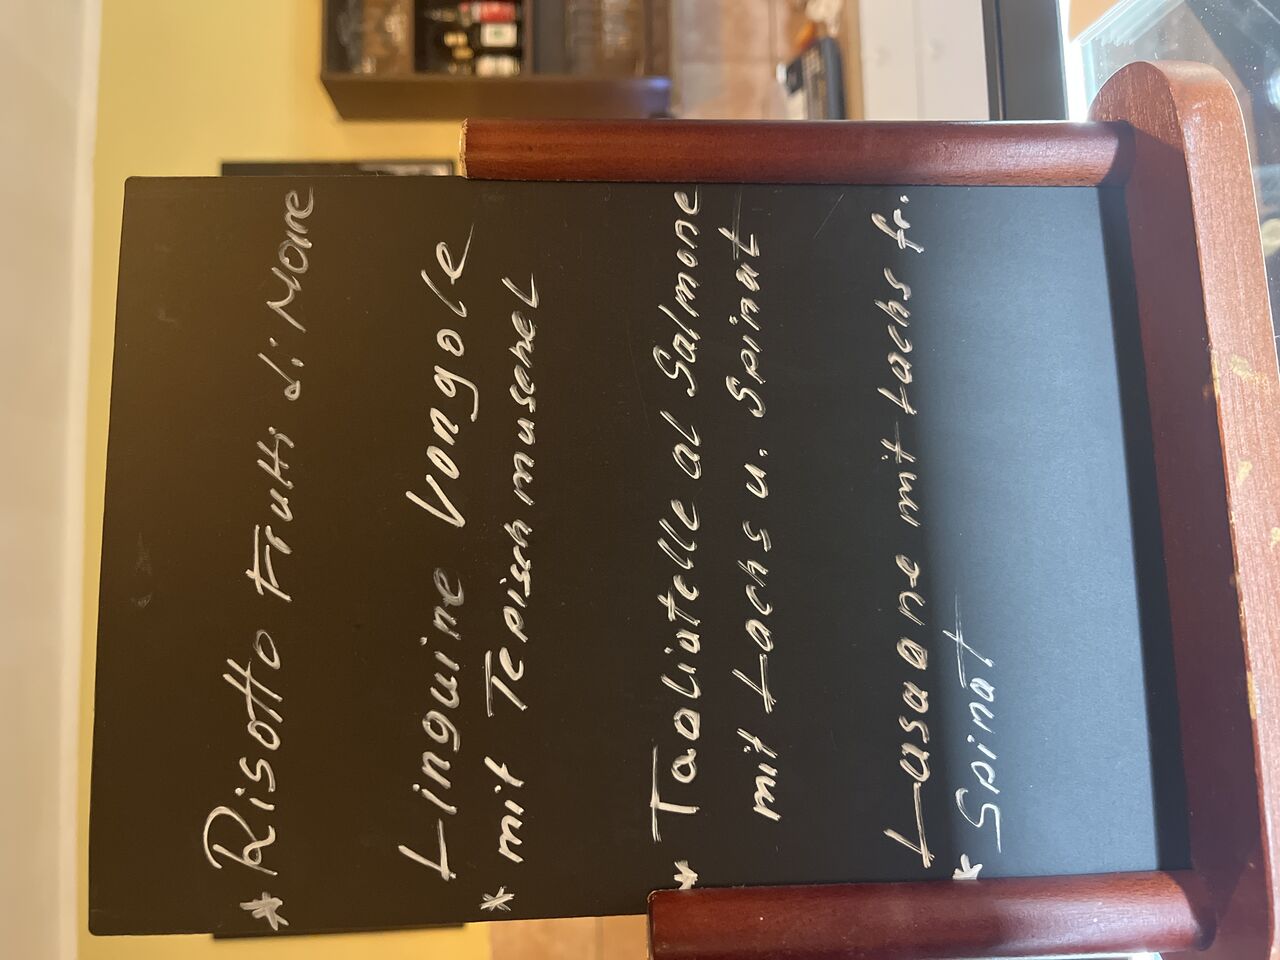 * Risotto Frutti di Mare
Linguine Vongole
* mit Tepischmuschel
* Taoliatelle al Salmone
mit Lachs u. Spinat
Lasagne mit Lachs fr.
* Spinat